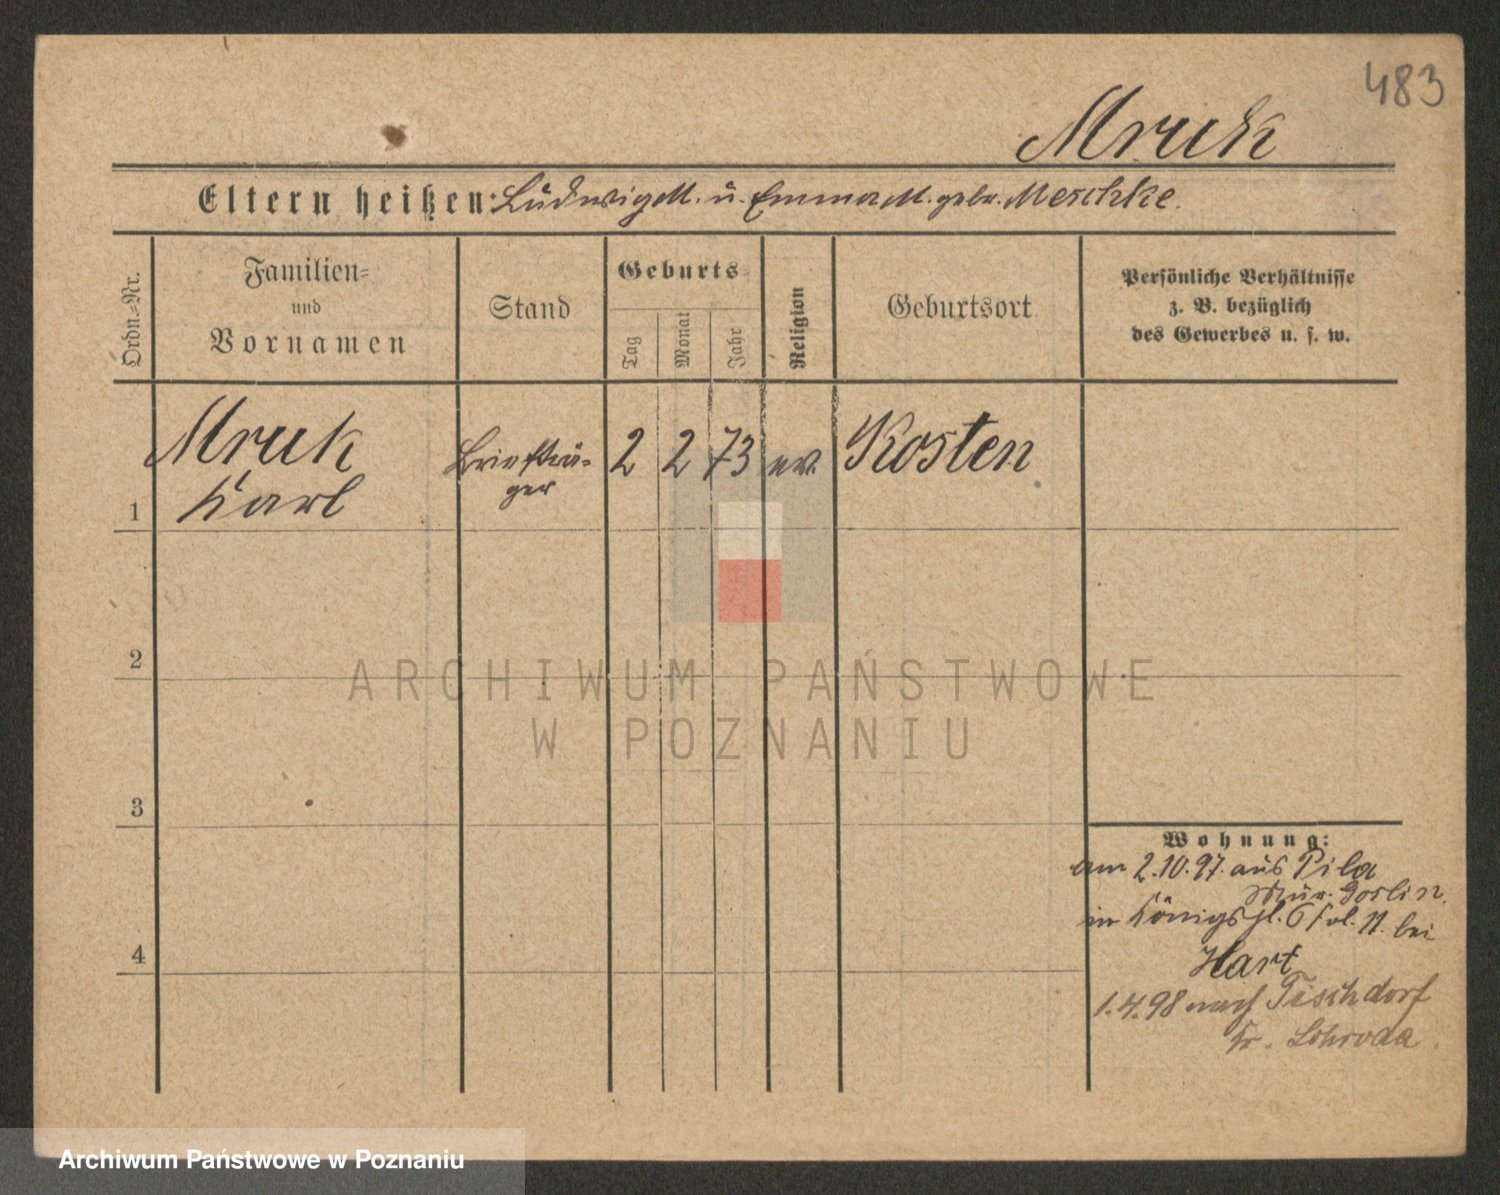 483
Mruk
Eltern heißen: Ludwig M. u. Emma M. geb. Meschke.
Ordn.=Nr.
Familien=
und
Vornamen
Stand
Geburts=
Tag
Monat
Jahr
Religion
Geburtsort
Persönliche Verhältnisse
z. B. bezüglich
des Gewerbes u. s. w.
1
Mruk
Karl
Briefträ-
ger
2
2
73
ev.
Kosten
2
3
4
ARCHIWUM PAŃSTWOWE
W POZNANIU
Wohnung:
am 2.10.97. aus Pila
Mur. Goslin.
in Königspl. 6 bei
Hart
1.4.98 nach Tischdorf
Kr.
Archiwum Państwowe w Poznaniu